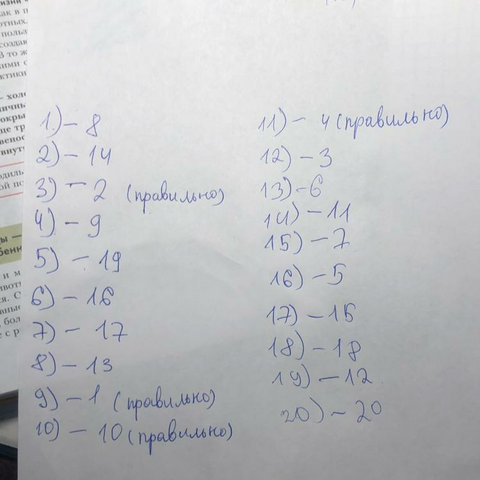 1.) – 8
2) – 14
3) – 2 (правильно)
4) – 9
5) – 19
6) – 16
7) – 17
8) – 13
9) – 1 (правильно)
10) – 10 (правильно)
11) – 4 (правильно)
12) – 3
13) – 6
14) – 11
15) – 7
16) – 5
17) – 15
18) – 18
19) – 12
20) – 20